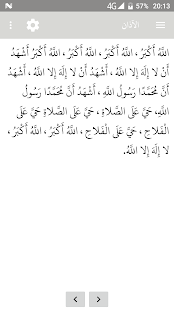 4G 57% 20:13
الأذان
اللَّهُ أَكْبَرُ ، اللَّهُ أَكْبَرُ ، اللَّهُ أَكْبَرُ ، اللَّهُ أَكْبَرُ أَشْهَدُ
أَنْ لا إِلَهَ إِلا اللَّهُ ، أَشْهَدُ أَنْ لا إِلَهَ إِلا اللَّهُ ، أَشْهَدُ
أَنَّ مُحَمَّدًا رَسُولُ اللَّهِ ، أَشْهَدُ أَنَّ مُحَمَّدًا رَسُولُ
اللَّهِ، حَيَّ عَلَى الصَّلاةِ ، حَيَّ عَلَى الصَّلاةِ حَيَّ عَلَى
الْفَلاحِ ، حَيَّ عَلَى الْفَلاحِ ، اللَّهُ أَكْبَرُ ، اللَّهُ أَكْبَرُ ،
لا إِلَهَ إِلا اللَّهُ.